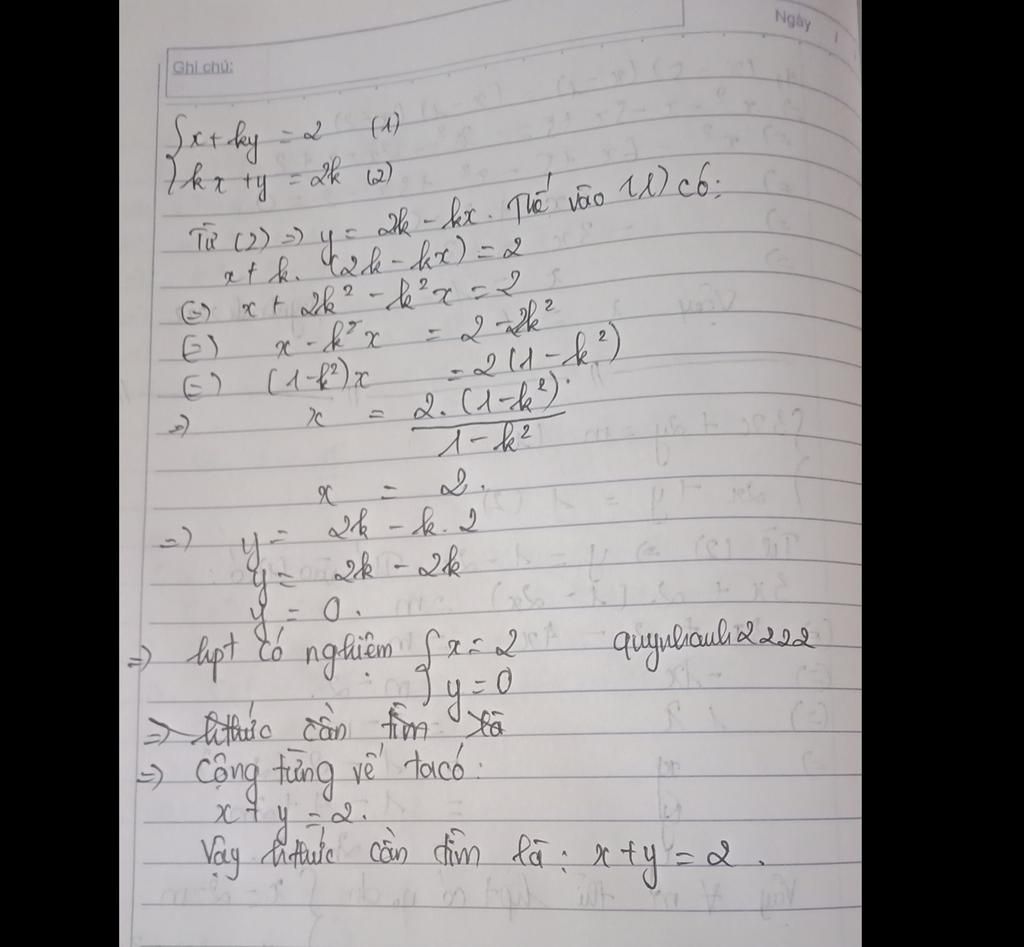 Ngày
Ghi chú:
{ x + ky = 2 (1)
kx + y = 2k (2)
Từ (2) => y = 2k - kx. Thế vào (1) có:
x + k. (2k - kx) = 2
(=) x + 2k² - k²x = 2
(=) x - k²x = 2 - 2k²
(=) (1-k²)x = 2(1-k²)
=> x = 2.(1-k²) / 1-k²
x = 2.
=> y = 2k - k.2
y = 2k - 2k
y = 0.
=> hpt có nghiệm { x = 2 quynhanh2222
y = 0
=> hthức cần tìm là
=> Cộng từng vế ta có:
x + y = 2.
Vậy hthức cần tìm là: x + y = 2.